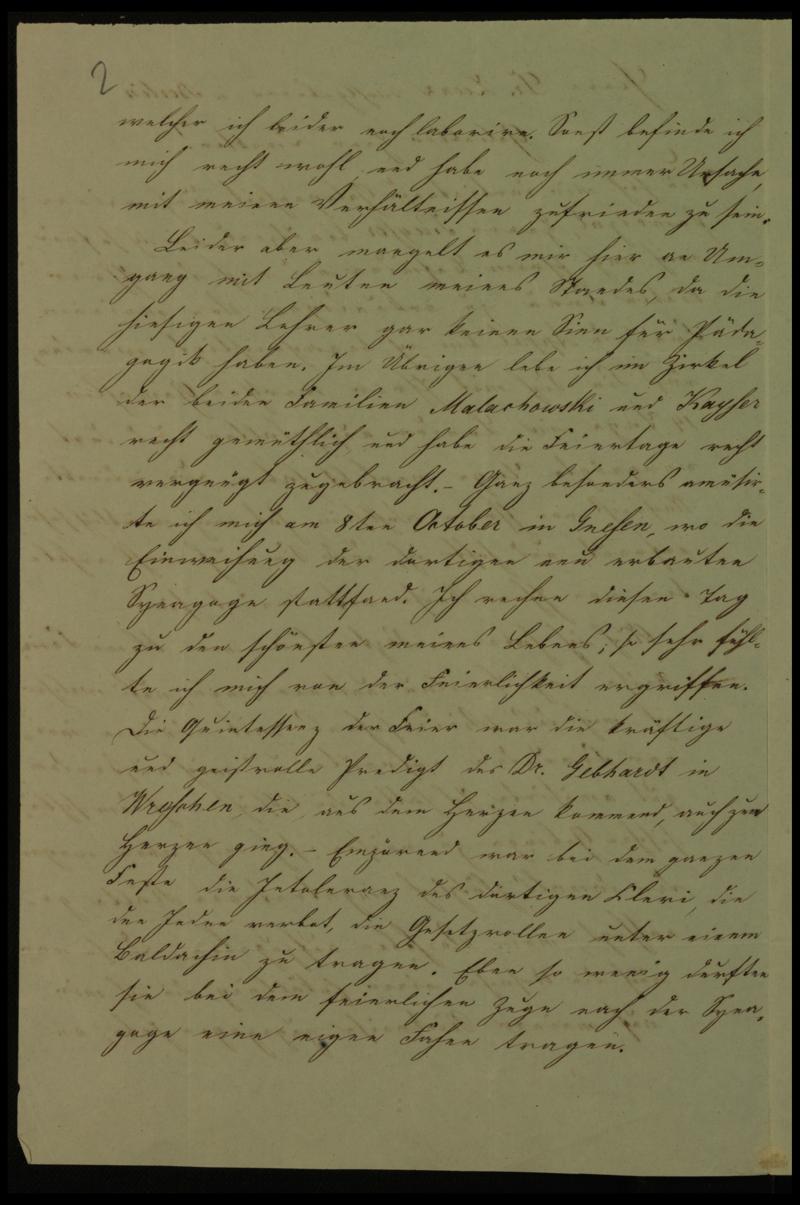 2
welcher ich leider noch laborire. Sonst befinde ich
mich recht wohl und habe noch immer Ursache,
mit meinen Verhältnissen zufrieden zu sein.
Leider aber mangelt es mir hier an Um-
gang mit Leuten meines Standes, da die
hiesigen Lehrer gar keinen Sinn für Päda-
gogik haben. Im Übrigen lebe ich im Zirkel
der beiden Familien Malachowski und Kayser
recht gemüthlich und habe die Feiertage recht
vergnügt zugebracht. – Ganz besonders amüsir-
te ich mich am 8ten October in Gnesen, wo die
Einweihung der dortigen neu erbauten
Synagoge stattfand. Ich rechne diesen Tag
zu den schönsten meines Lebens; so sehr fühl-
te ich mich von der Feierlichkeit ergriffen.
Die Quintessenz der Feier war die kräftige
und geistvolle Predigt des Dr. Gebhardt in
Wreschen, die, aus dem Herzen kommend, auch zum
Herzen ging. – Empörend war bei dem ganzen
Feste die Intoleranz des dortigen Cleri, die
den Juden verbot, die Gesetzrollen unter einem
Baldachin zu tragen. Eben so wenig durften
sie bei dem feierlichen Zuge nach der Syna-
goge eine eigne Fahne tragen.